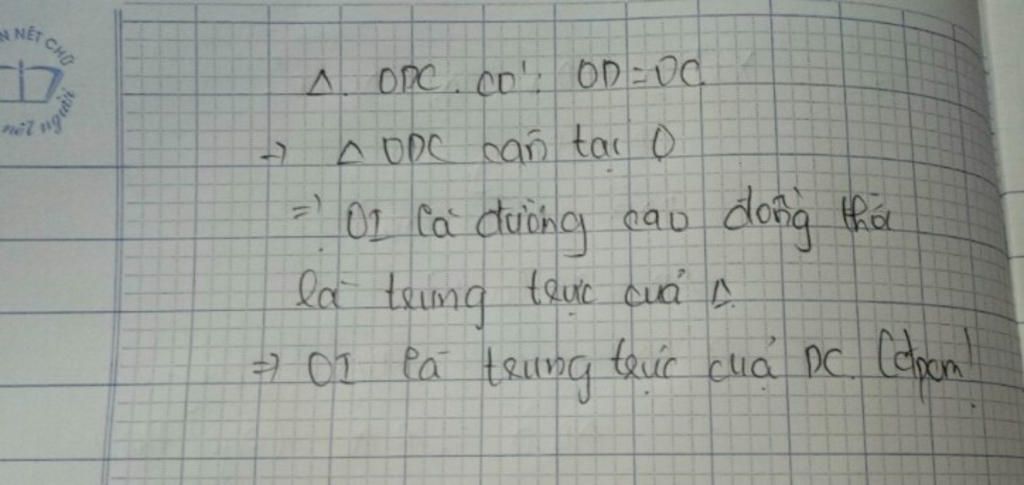 N NẾT CHỮ
nết người
Δ ODC. có: OD = OC
→ Δ ODC cân tại O
=> OI là đường cao đồng thời
là trung trực của Δ
=> OI là trung trực của DC. (đpcm)